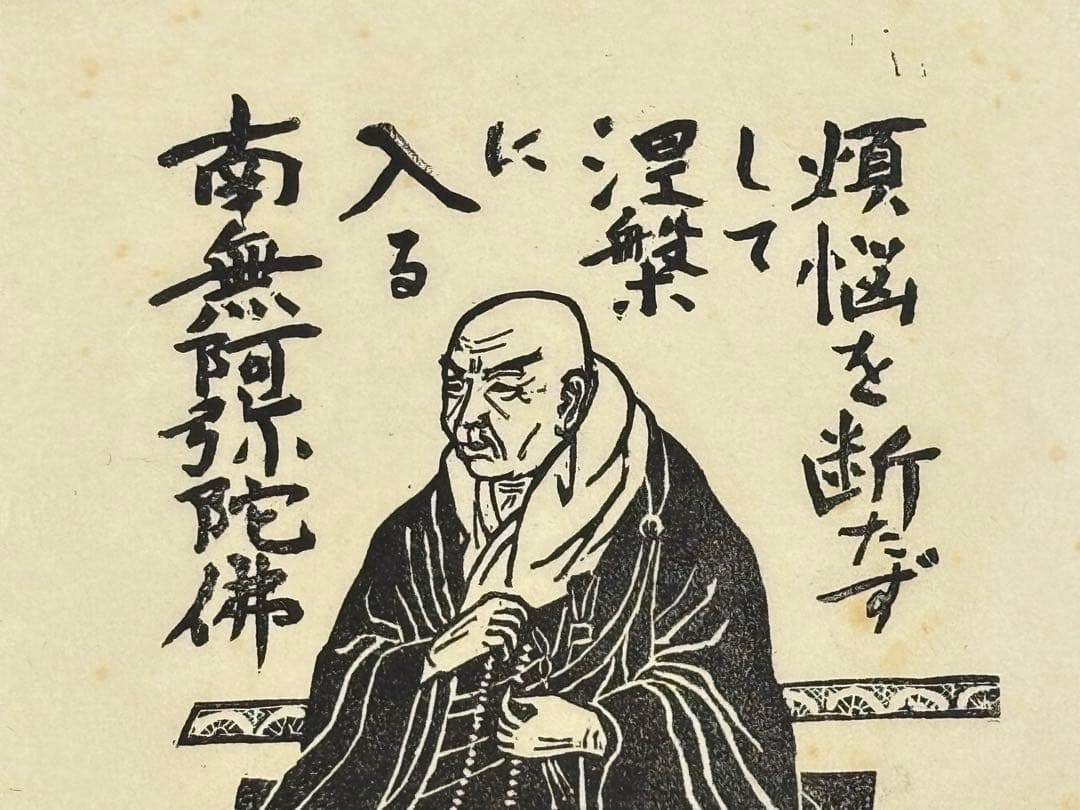 煩悩を断たず
して
涅槃
に
入る
南無阿弥陀佛